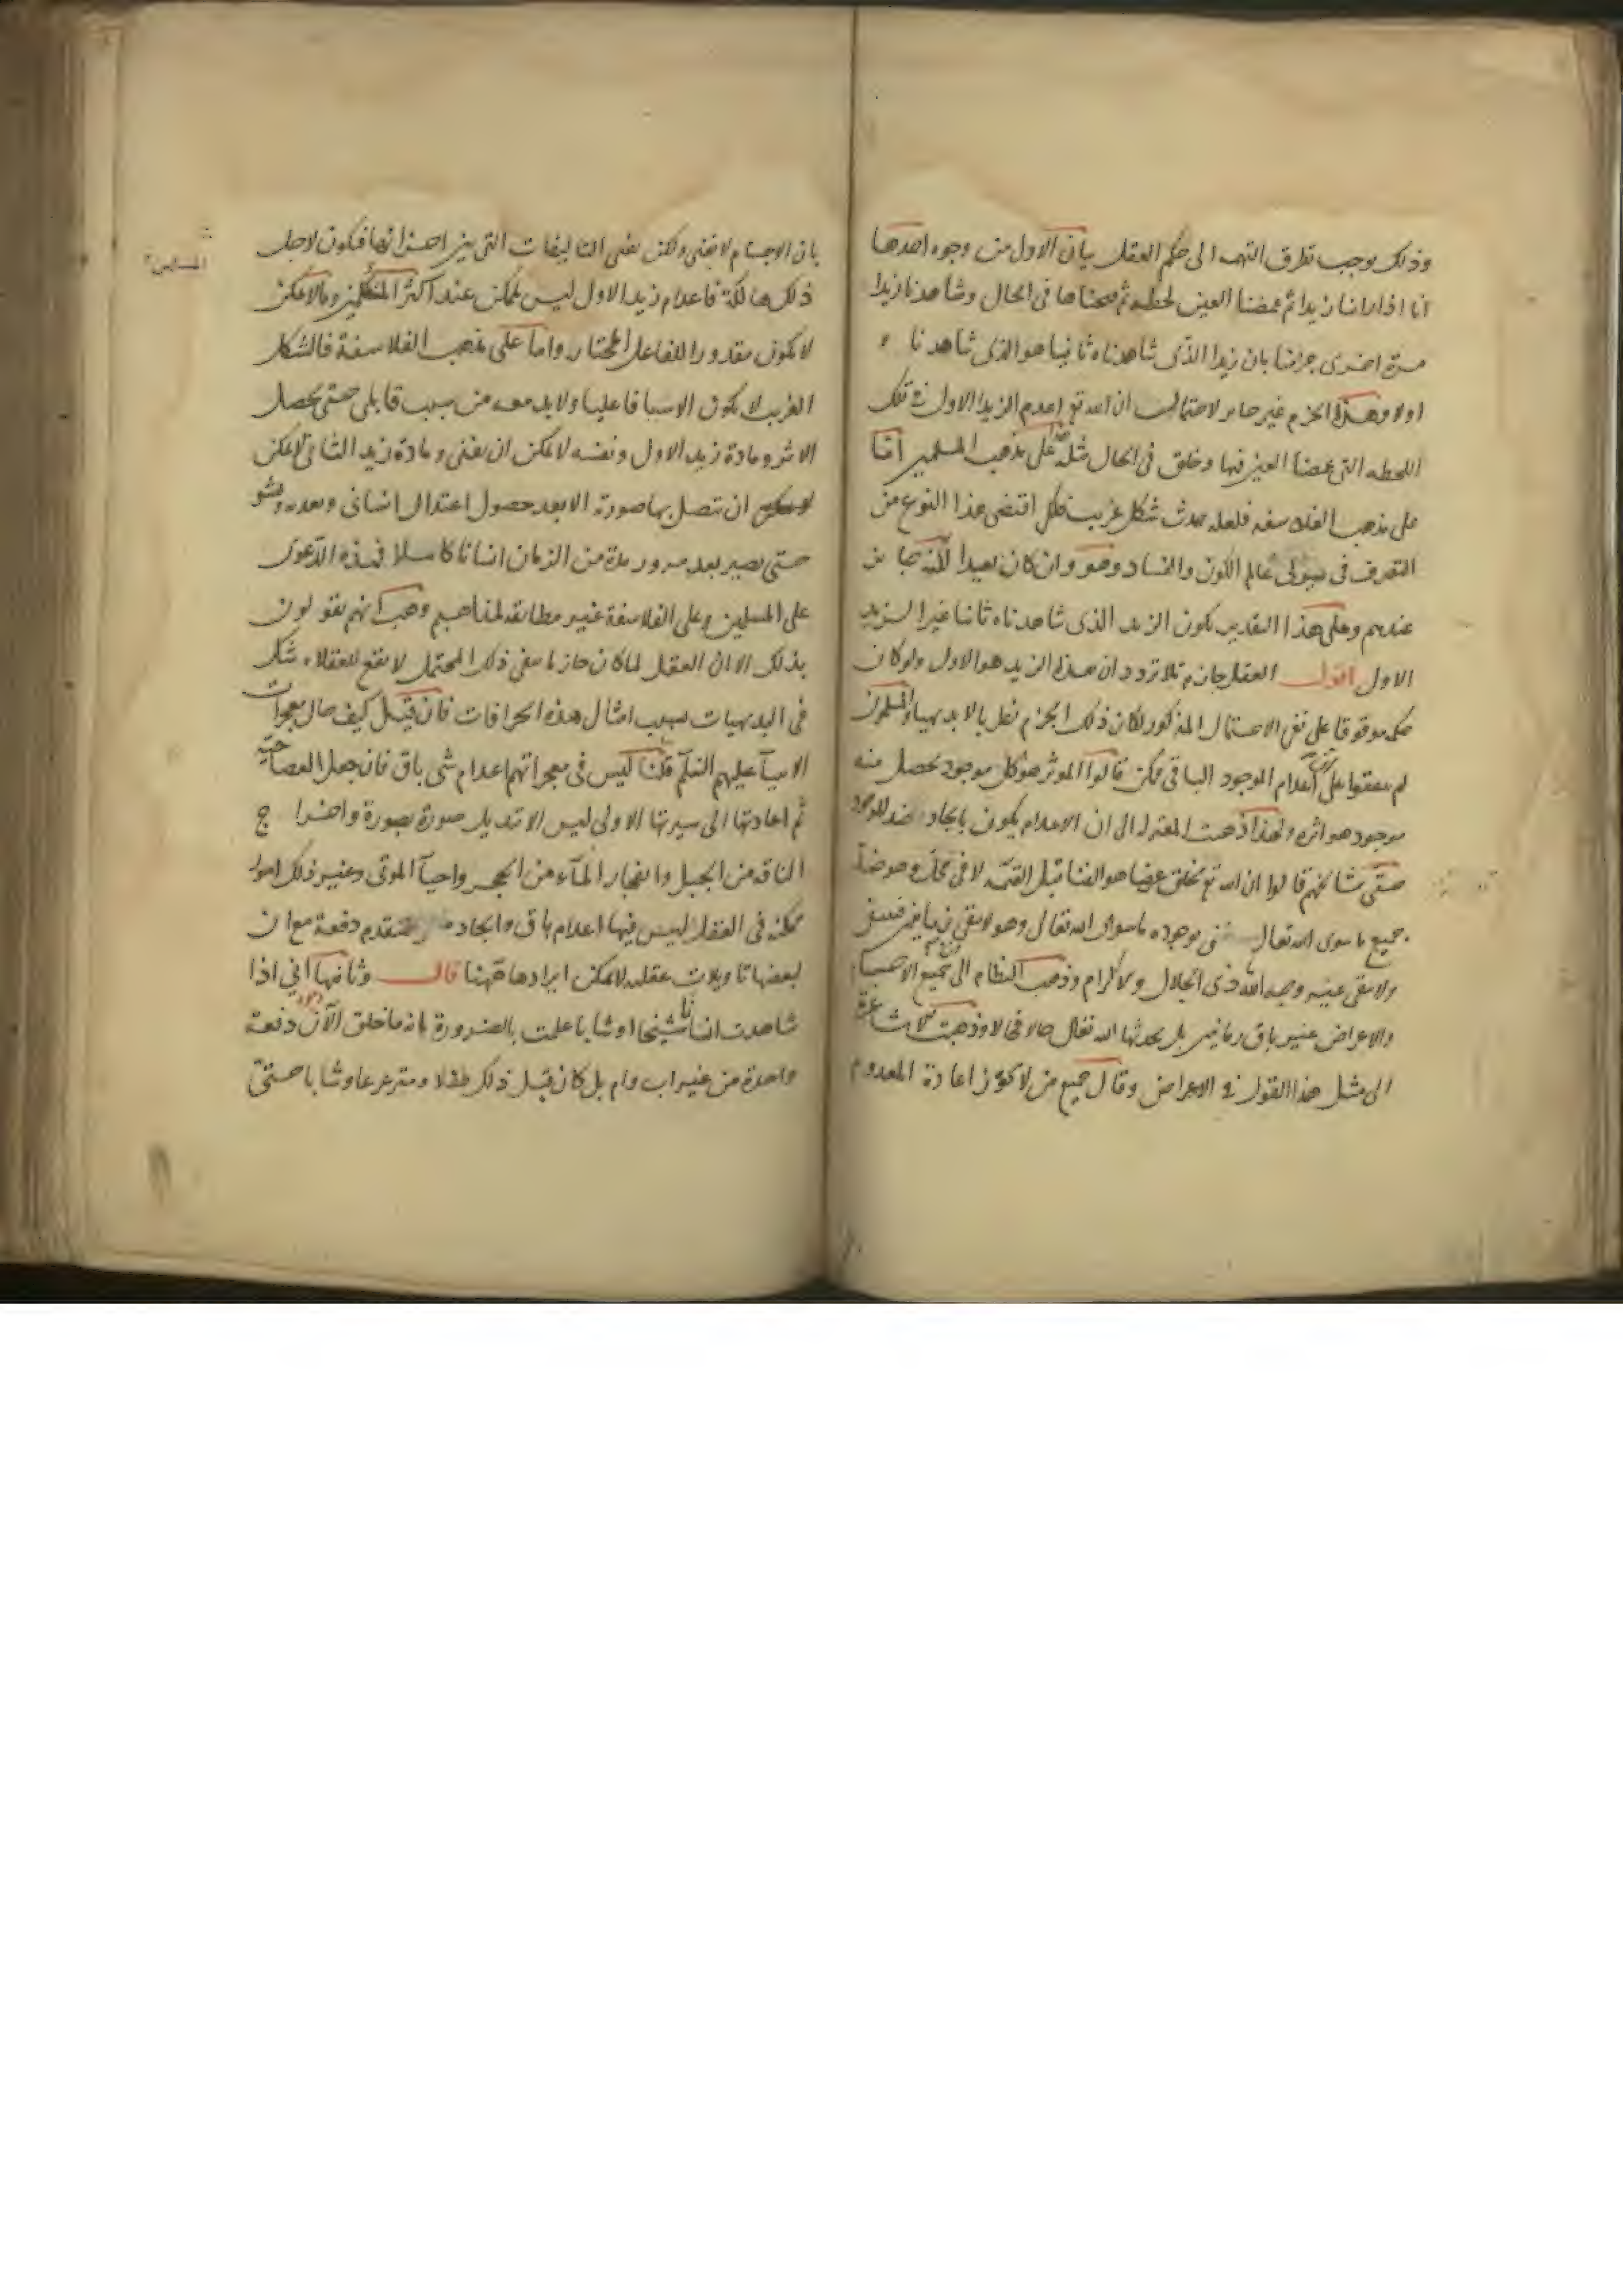 وذلك يوجب تطرق التهمه الى حكم العقل بيان الاول من وجوه احدها
انا اذا راينا زيدا ثم غمضنا العين لحظه ثم فتحناها فى الحال وشاهدنا زيدا
مرة اخرى جزمنا بان زيدا الذى شاهدناه ثانيا هو الذى شاهدناه
اولا وهذا الجزم غير جايز لاحتمال ان الله تع اعدم الزيد الاول فى تلك
اللحظه التى غمضنا العين فيها وخلق فى الحال مثله على مذهب المسلمين اما
على مذهب الفلاسفه فلعله حدث شكل غريب فلكى اقتضى هذا النوع من
التصرف فى هيولى عالم الكون والفساد وهو وان كان بعيدا لكنه جايز
عندهم وعلى هذا التقدير يكون الزيد الذى شاهدناه ثانيا غير الزيد
الاول اقول العقل جازم بلا تردد ان هذا الزيد هو الاول ولو كان
حكمه موقوفا على نفى الاحتمال المذكور لكان ذلك الجزم نظريا لا بديهيا والمسلمون
لم يتفقوا على ان اعدام الموجود الباقى ممكن قالوا الموثر هو كل موجود يحصل منه
موجود هو اثره ولهذا ذهبت المعتزله الى ان الاعدام يكون بايجاد ضد للموجود
حتى مشائخهم قالوا ان الله تع يخلق عرضا هو الفنا قبل القيمه لا فى محل وهو ضد
جميع ما سوى الله تعالى فيفنى بوجوده ما سوى الله تعالى وهو لا يبقى زمانين فيفنى
ولا يبقى غير وجه الله ذى الجلال والاكرام وذهب النظام الى ان جميع الاجسام
والاعراض غير باق زمانين بل يحدثها الله تعالى حالا فحالا وذهبت الاشاعرة
الى مثل هذا القول فى الاعراض وقال جميع من لا يجوز اعادة المعدوم
بان الاجسام لا تفنى ولكن تفنى التاليفات التى بين اجزائها فيكون لاجل
ذلك هالكة فاعدام زيد الاول ليس بممكن عند اكثر المتكلمين وما لا يمكن
لا يكون مقدورا للفاعل المختار واما على مذهب الفلاسفة فالشكل
الغريب لا يكون الا سببا فاعليا ولا بد معه من سبب قابلى حتى يحصل
الاثر ومادة زيد الاول ونفسه لا يمكن ان يفنى ومادة زيد الثانى لا يمكن
ان تتصل بها صورته الا بعد حصول اعتدال انسانى وبعده نشو
حتى يصير بعد مرور مدة من الزمان انسانا كاملا فهذه الدعوى
على المسلمين وعلى الفلاسفة غير مطابقه لمذاهبهم وهب انهم يقولون
بذلك الا ان العقل لما كان جازما بنفى ذلك المحتمل لا يقع للعقلاء شك
فى البديهيات بسبب امثال هذه الخرافات فان قيل كيف حال معجزات
الانبيآ عليهم السلم قلنا ليس فى معجزاتهم اعدام شى باق فان جعل العصا حية
ثم اعادتها الى سيرتها الاولى ليس الا تبديل صورة بصورة واخراج
الناقه من الجبل وانفجار المآء من الحجر واحيآ الموتى وغير ذلك امور
ممكنه فى العقل ليس فيها اعدام باق وايجاد دفعة مع ان
لبعضها تاويلات عقليه لا يمكن ايرادها ههنا قال وثانيها انى اذا
شاهدت انسانا شيخا او شابا علمت بالضرورة انه ما خلق الآن دفعة
واحدة من غير اب وام بل كان قبل ذلك طفلا ومترعرعا وشابا حتى